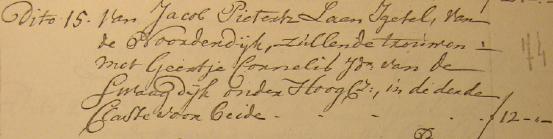 Dito 15. Van Jacob Pietersz Laan Jgesel, van
de Noordendijk, zullende trouwen
met Geertje Cornelis Jdr. van de
Swaagdijk onder Hoogc:, in de derde
Classe voor beide - - - - 12 - -
44